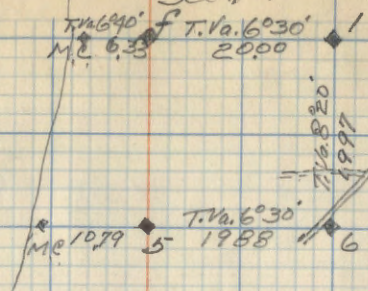 T.Va.6°40' f T.Va.6°30' 1
M.C. 6.33 20.00
T.V.6.8°20'
1997
T.Va.6°30'
M.C. 10.79 5 19.88 6